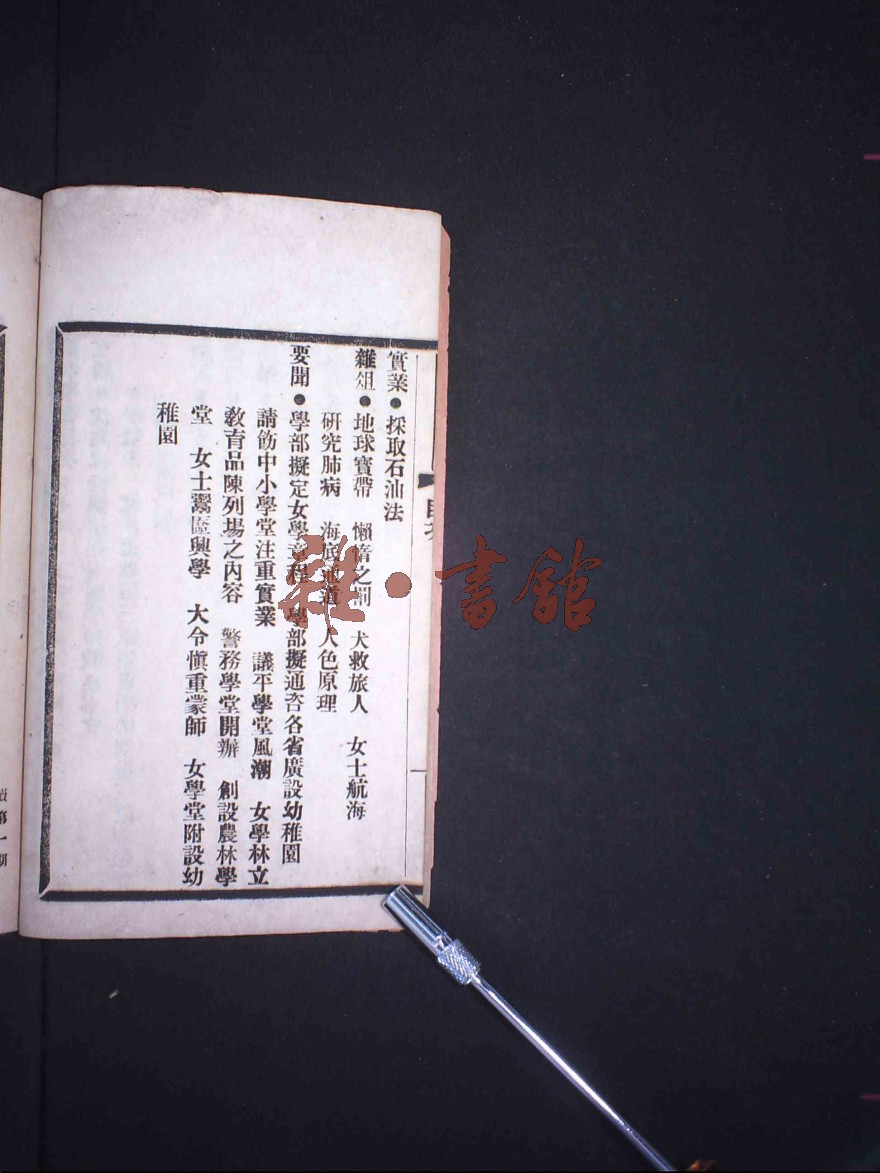 實業●採取石油法
雜俎●地球寶帶　懶惰之罰　犬救旅人　女士航海
研究肺病　海底通道　人色原理
要聞●學部擬定女學章程　學部擬通咨各省廣設幼稚園
請飭中小學堂注重實業　議平學堂風潮　女學林立
敎育品陳列場之內容　警務學堂開辦　創設農林學
堂　女士鬻匳興學　大令愼重蒙師　女學堂附設幼
稚園
第一期
雜·書館